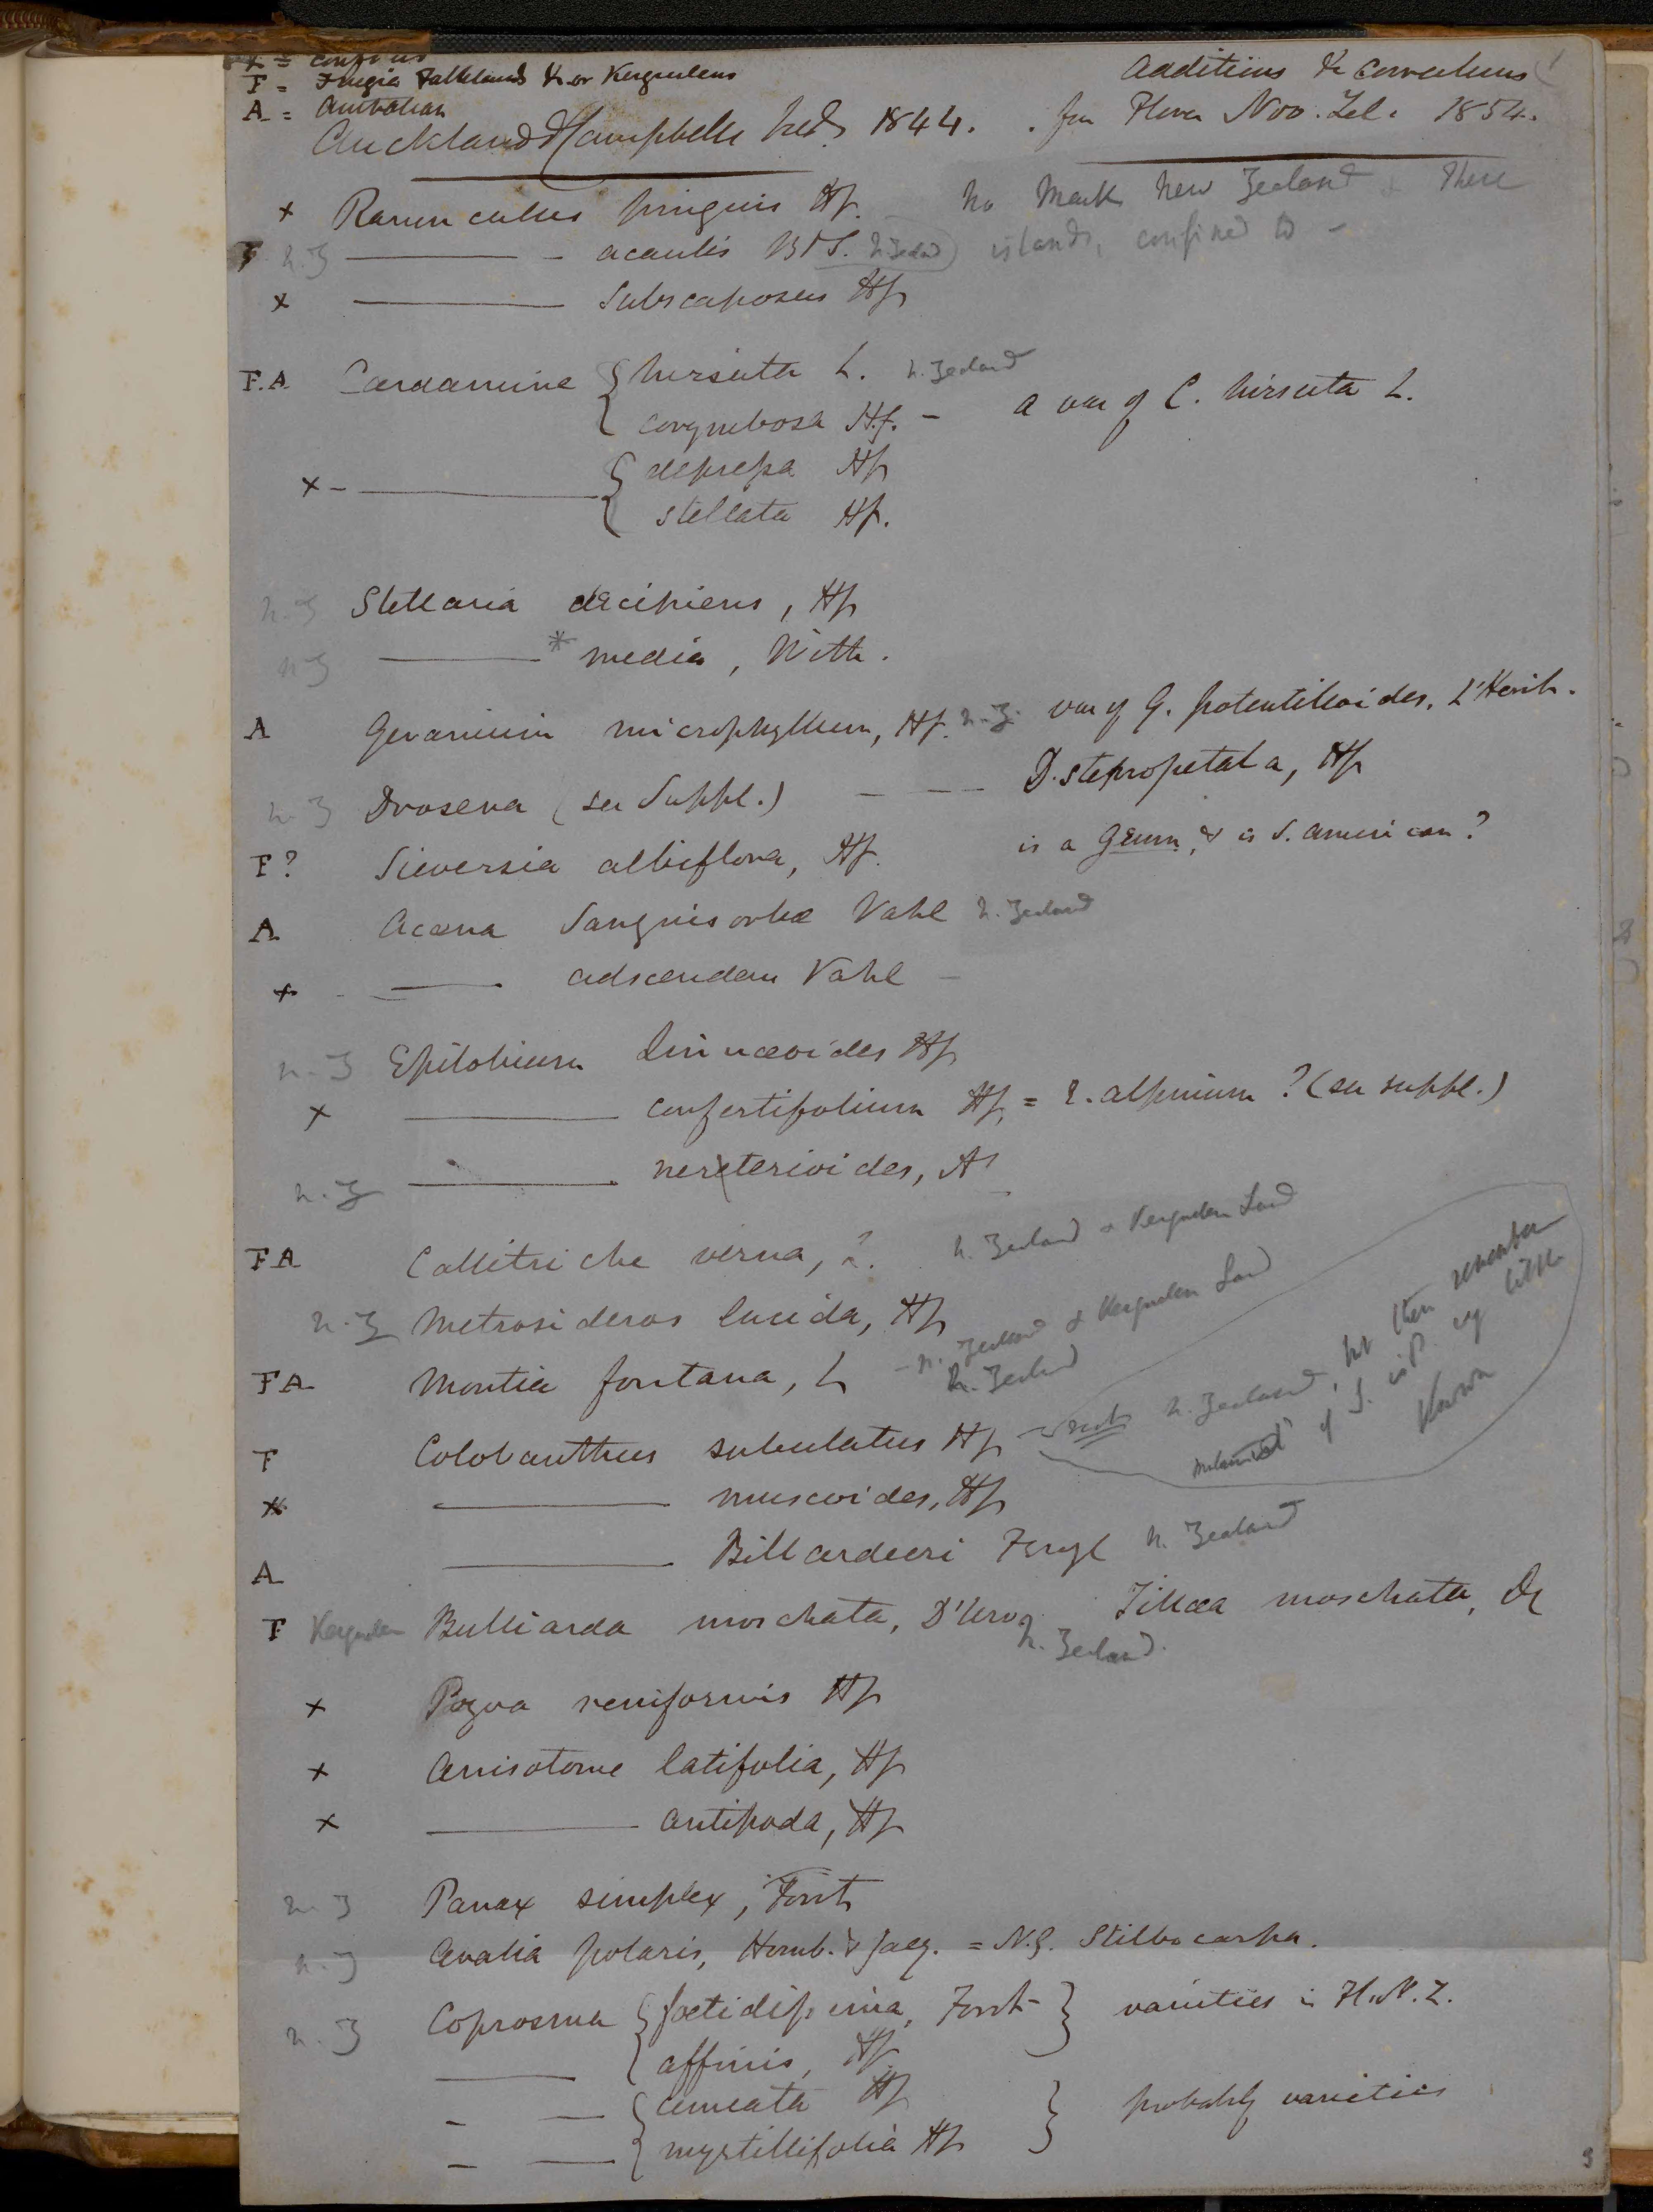 x = confined
F = Fuegia Falkland & or Kerguelens
A = Australian
Additions & Corrections
Auckland & Campbells Isds 1844. . from Flora Nov. Zel. 1854.
x Ranunculus pinguis Hf. No Mark New Zealand & these
n.Z ——— acaulis B&S. N Zeland islands, confined to –
x ——— subscaposus Hf
F.A Cardamine { hirsuta L. N. Zealand
corymbosa H.f. – a var of C. hirsuta L.
x – ——— { depressa Hf
stellata Hf.
n.Z Stellaria decipiens, Hf
n Z ——— * media, With.
A Geranium microphyllum, Hf. n.Z. var of G. potentilloides, L'Herit.
n.Z Drosera (see Suppl.) – – – D. stenopetala, Hf
F? Sieversia albiflora, Hf. is a Geum, & is S. American?
A Acaena Sanguisorbæ Vahl N. Zealand
x ——— adscendens Vahl –
n.Z Epilobium linnæoides Hf
x ——— confertifolium Hf, = E. alpinum? (see suppl.)
n.Z ——— nerterioides, A
FA Callitriche verna, ?. N. Zealand & Kerguelen Land
n.Z Metrosideros lucida, Hf
FA Montia fontana, L – N. Zealand & Kerguelen Land
N. Zealand
F Colobanthus subulatus Hf – not N. Zealand, but then remember
of S. isld. very little
known
x ——— muscoides, Hf
A ——— Billardieri Fenzl N. Zealand
F Kerguelen Bulliarda moschata, D'Urv. Tillæa moschata, Dc
N. Zealand.
x Pozoa reniformis Hf
x Anisotome latifolia, Hf
x ——— antipoda, Hf
n Z Panax simplex, Forst
n.Z Aralia polaris, Homb. & Jacq. = N.G. Stilbocarpa.
n.Z Coprosma { foetidissima, Forst } varieties in Fl. N. Z.
——— affinis, Hf.
– — { cuneata Hf } probably varieties
– — myrtillifolia Hf